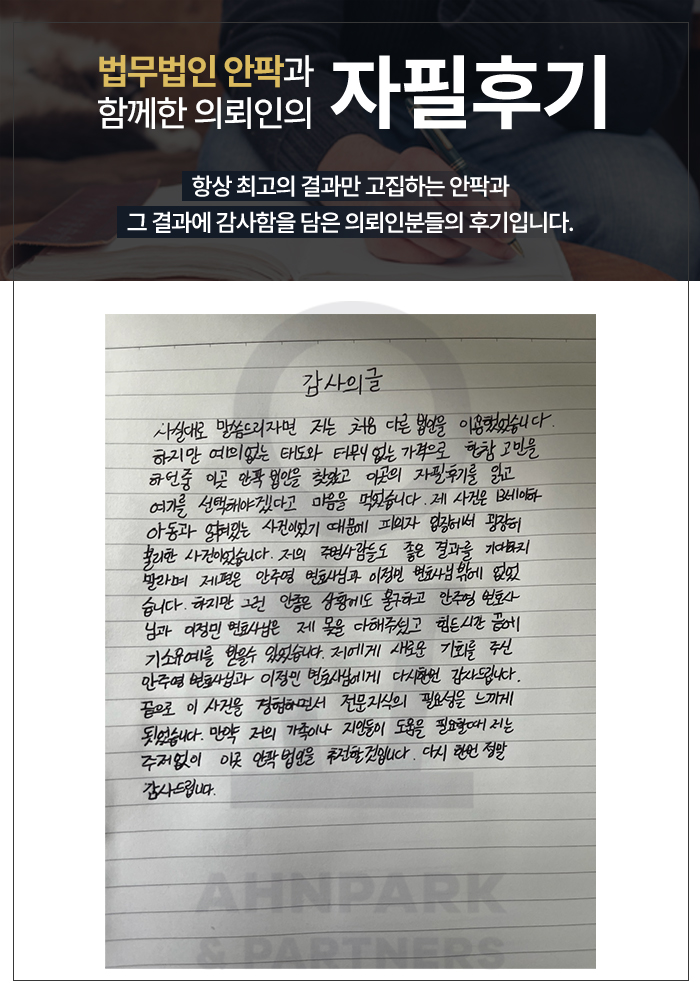 법무법인 안팍과
함께한 의뢰인의
자필후기
항상 최고의 결과만 고집하는 안팍과
그 결과에 감사함을 담은 의뢰인분들의 후기입니다.
감사의글
사실대로 말씀드리자면 저는 처음 다른 법인을 이용했었습니다.
하지만 예의없는 태도와 터무니 없는 가격으로 한참 고민을
하던중 이곳 안팍 법인을 찾았고 이곳의 자필후기를 읽고
여기를 선택해야겠다고 마음을 먹었습니다. 제 사건은 13세이하
아동과 얽혀있는 사건이었기 때문에 피의자 입장에서 굉장히
불리한 사건이었습니다. 저의 주변사람들도 좋은 결과를 기대하지
말라며 제편은 안주영 변호사님과 이정민 변호사님밖에 없었
습니다. 하지만 그런 안좋은 상황에도 불구하고 안주영 변호사
님과 이정민 변호사님은 제 몫을 다해주셨고 힘든시간 끝에
기소유예를 받을수 있었습니다. 저에게 새로운 기회를 주신
안주영 변호사님과 이정민 변호사님에게 다시한번 감사드립니다.
끝으로 이 사건을 경험하면서 전문지식의 필요성을 느끼게
되었습니다. 만약 저의 가족이나 지인들이 도움을 필요할때 저는
주저없이 이곳 안팍 법인을 추천할것입니다. 다시 한번 정말
감사드립니다.
AHNPARK
& PARTNERS